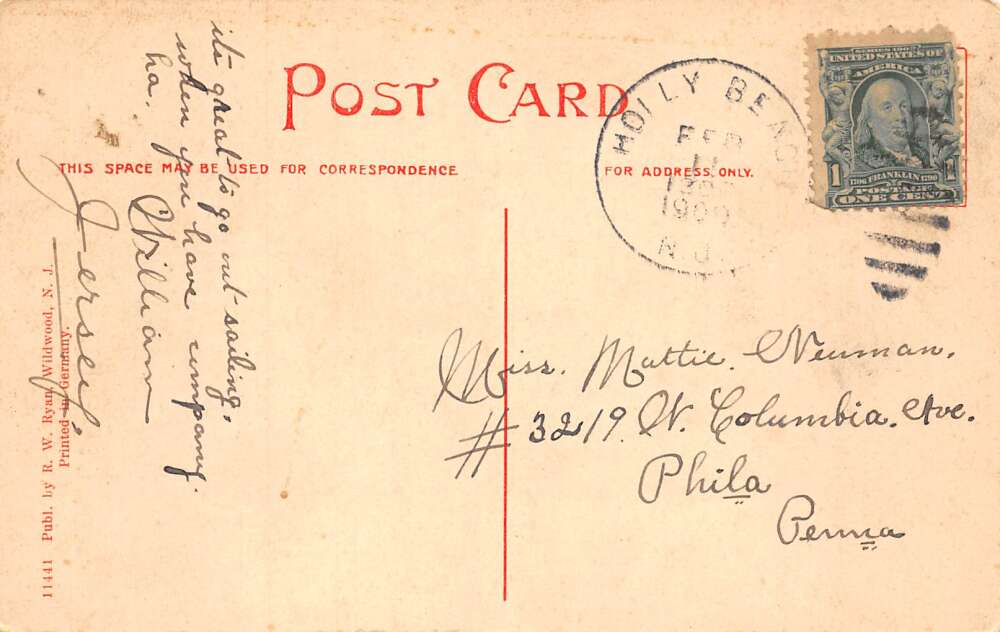 POST CARD
THIS SPACE MAY BE USED FOR CORRESPONDENCE
FOR ADDRESS ONLY.
HOLLY BEACH
FEB
1909
N.J.
SERIES 1902
UNITED STATES OF
AMERICA
1
1706 FRANKLIN 1790
POSTAGE
ONE CENT
its great to go out sailing,
when you have company.
ha. William
Jersey,
11441 Publ. by R. W. Ryan, Wildwood, N. J.
Printed in Germany.
Miss. Mattie. Neuman.
# 3219. W. Columbia. Ave.
Phila
Penna